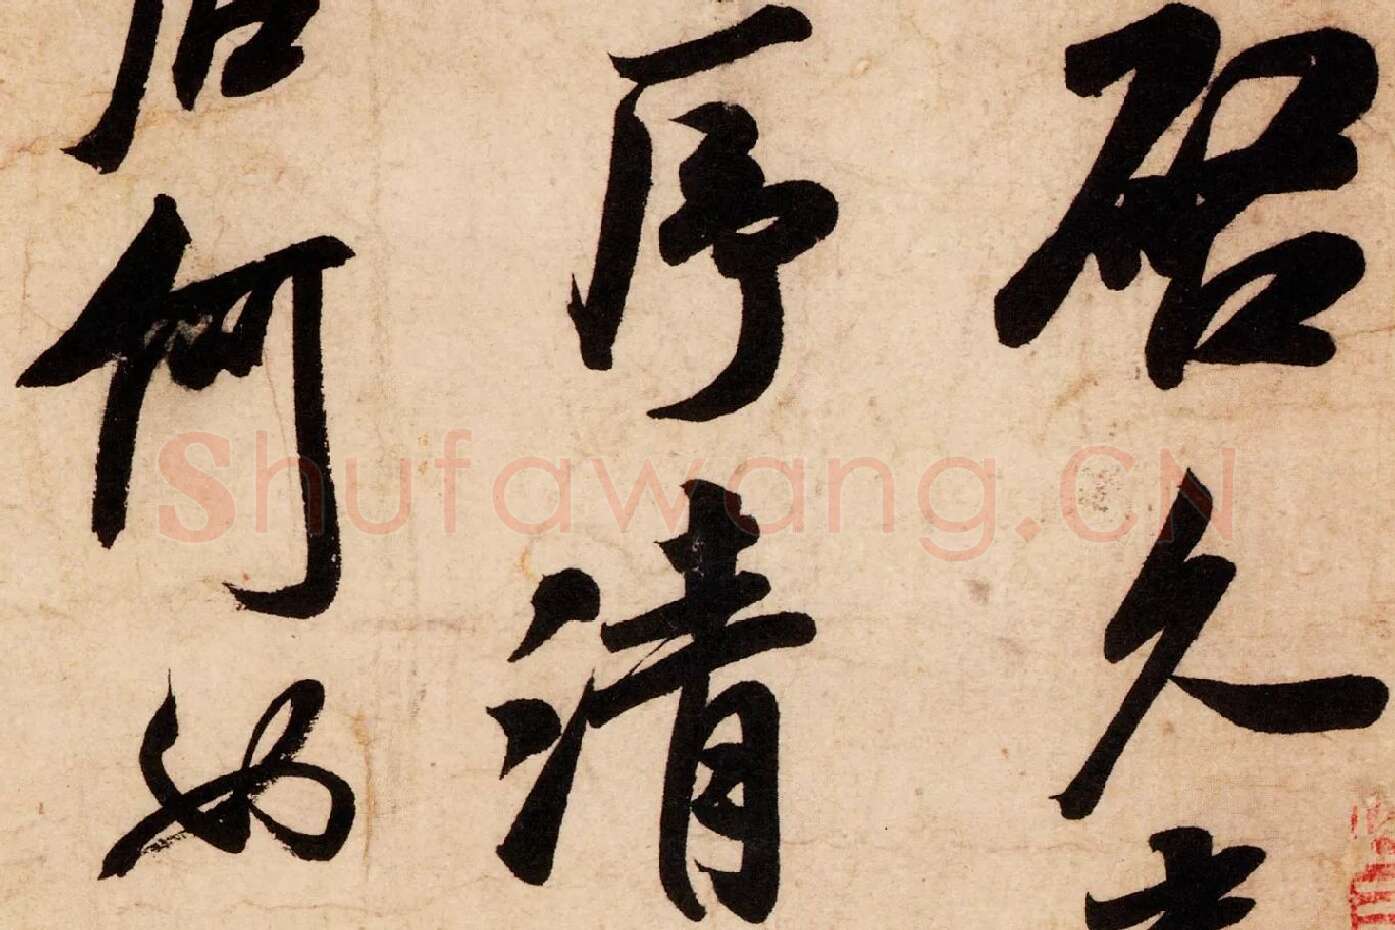 启久
序清
居何如
Shufawang.CN